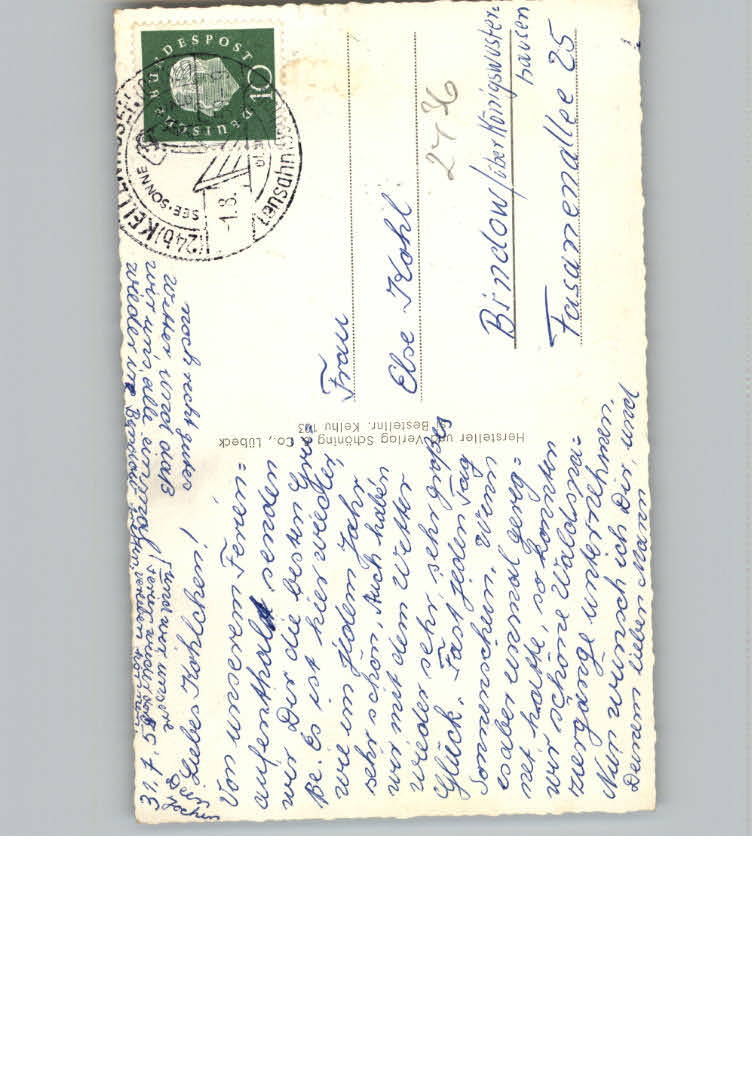 31.7.59
Liebes Kohlchen!
Von unserem Ferien=
aufenthalt senden
wir Dir die besten Grü=
ße. Es ist hier wieder,
wie im jedem Jahr
sehr schön. Auch haben
wir mit dem Wetter
wieder sehr, sehr großes
Glück. Fast jeden Tag
Sonnenschein. Wenn
es aber einmal gereg=
net hatte, so konnten
wir schöne Waldspa=
ziergänge unternehmen.
Nun wünsch ich Dir, und
Deinem lieben Mann
noch recht gutes
Wetter und daß
wir uns alle einmal
wieder in
Dein
Jochen
Hersteller und Verlag Schöning & Co., Lübeck
Bestellnr. Kelhu 103
DEUTSCHE BUNDESPOST
10
(24b) KELLENHUSEN
SEE·SONNE
-1.8.
Frau
Else Kohl
2436
Bindow/über Königswuster=
hausen
Fasanenallee 25